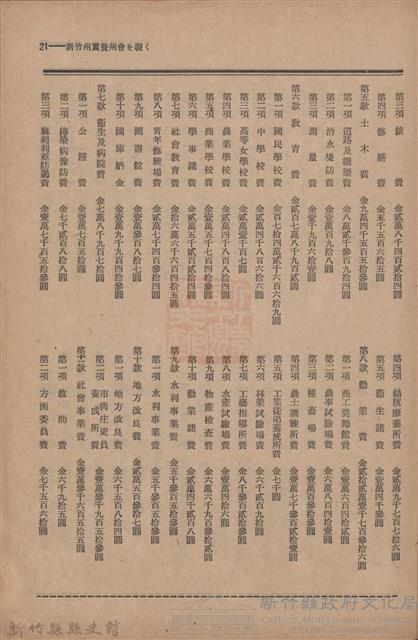 21——新竹州翼賛州會を覗く
第三項 雜費 金貳萬八千四百貳拾四圓
第四項 修繕費 金五千五百六拾五圓
第五款 土木費 金九萬四千五百五拾參圓
第一項 道路及橋梁費 金八萬貳千參百九拾四圓
第二項 治水堤防費 金壹萬百九拾八圓
第三項 測量費 金壹千九百六拾壹圓
第六款 教育費 金貳百七萬八千九百貳圓
第一項 國民學校費 金百七拾四萬貳千六百六拾九圓
第二項 中學校費 金四萬四千八百六拾六圓
第三項 高等女學校費 金貳萬參千百七圓
第四項 農業學校費 金四萬八千八百八拾四圓
第五項 商業學校費 金壹萬五千七百四拾參圓
第六項 學事諸費 金貳萬五千貳百四拾五圓
第七項 社會教育費 金拾六萬六千六百四拾五圓
第八項 青年修練場費 金貳萬七千四百參拾圓
第九項 圖書館費 金壹萬參百八拾七圓
第十項 國庫納金 金壹萬九千九百四拾參圓
第七款 衞生及病院費 金七萬八千九百七拾圓
第一項 公醫費 金壹萬九百八拾圓
第二項 傳染病豫防費 金七千貳百八拾八圓
第三項 麻刺利亞防遏費 金壹萬七千百五拾參圓
第四項 結核療養所費 金貳萬九千七百五拾圓
第五項 衞生諸費 金壹萬四千參百圓
第八款 勸業費 金貳拾貳萬壹千七百參拾六圓
第一項 商工奬勵館費 金壹萬六百四拾貳圓
第二項 農事試驗場費 金六萬八百四拾壹圓
第三項 種畜場費 金壹萬百參拾參圓
第四項 農士訓練所費 金壹萬七千參百貳拾壹圓
第五項 工業徒弟養成所費 金七千圓
第六項 林業試驗場費 金六千貳百九拾圓
第七項 工藝指導所費 金八千參百貳拾參圓
第八項 水產試驗場費 金壹萬四拾六圓
第九項 物產檢查費 金六萬六千九百參拾貳圓
第十項 勸業諸費 金貳萬四千貳百八圓
第九款 水利事業費 金五千參百五拾五圓
第一項 水利事業費 金五千參百五拾五圓
第十款 地方改良費 金貳萬五百參拾參圓
第一項 地方改良費 金六千五百八拾四圓
第二項 市街庄吏員養成所費
第十一款 社會事業費 金壹萬參千六百五拾五圓
第一項 救助費 金六千九拾五圓
第二項 方面委員費 金七千五百六拾圓
新竹縣縣史館
新竹縣政府文化局
Cultural Affairs Bureau of Hsinchu County Government